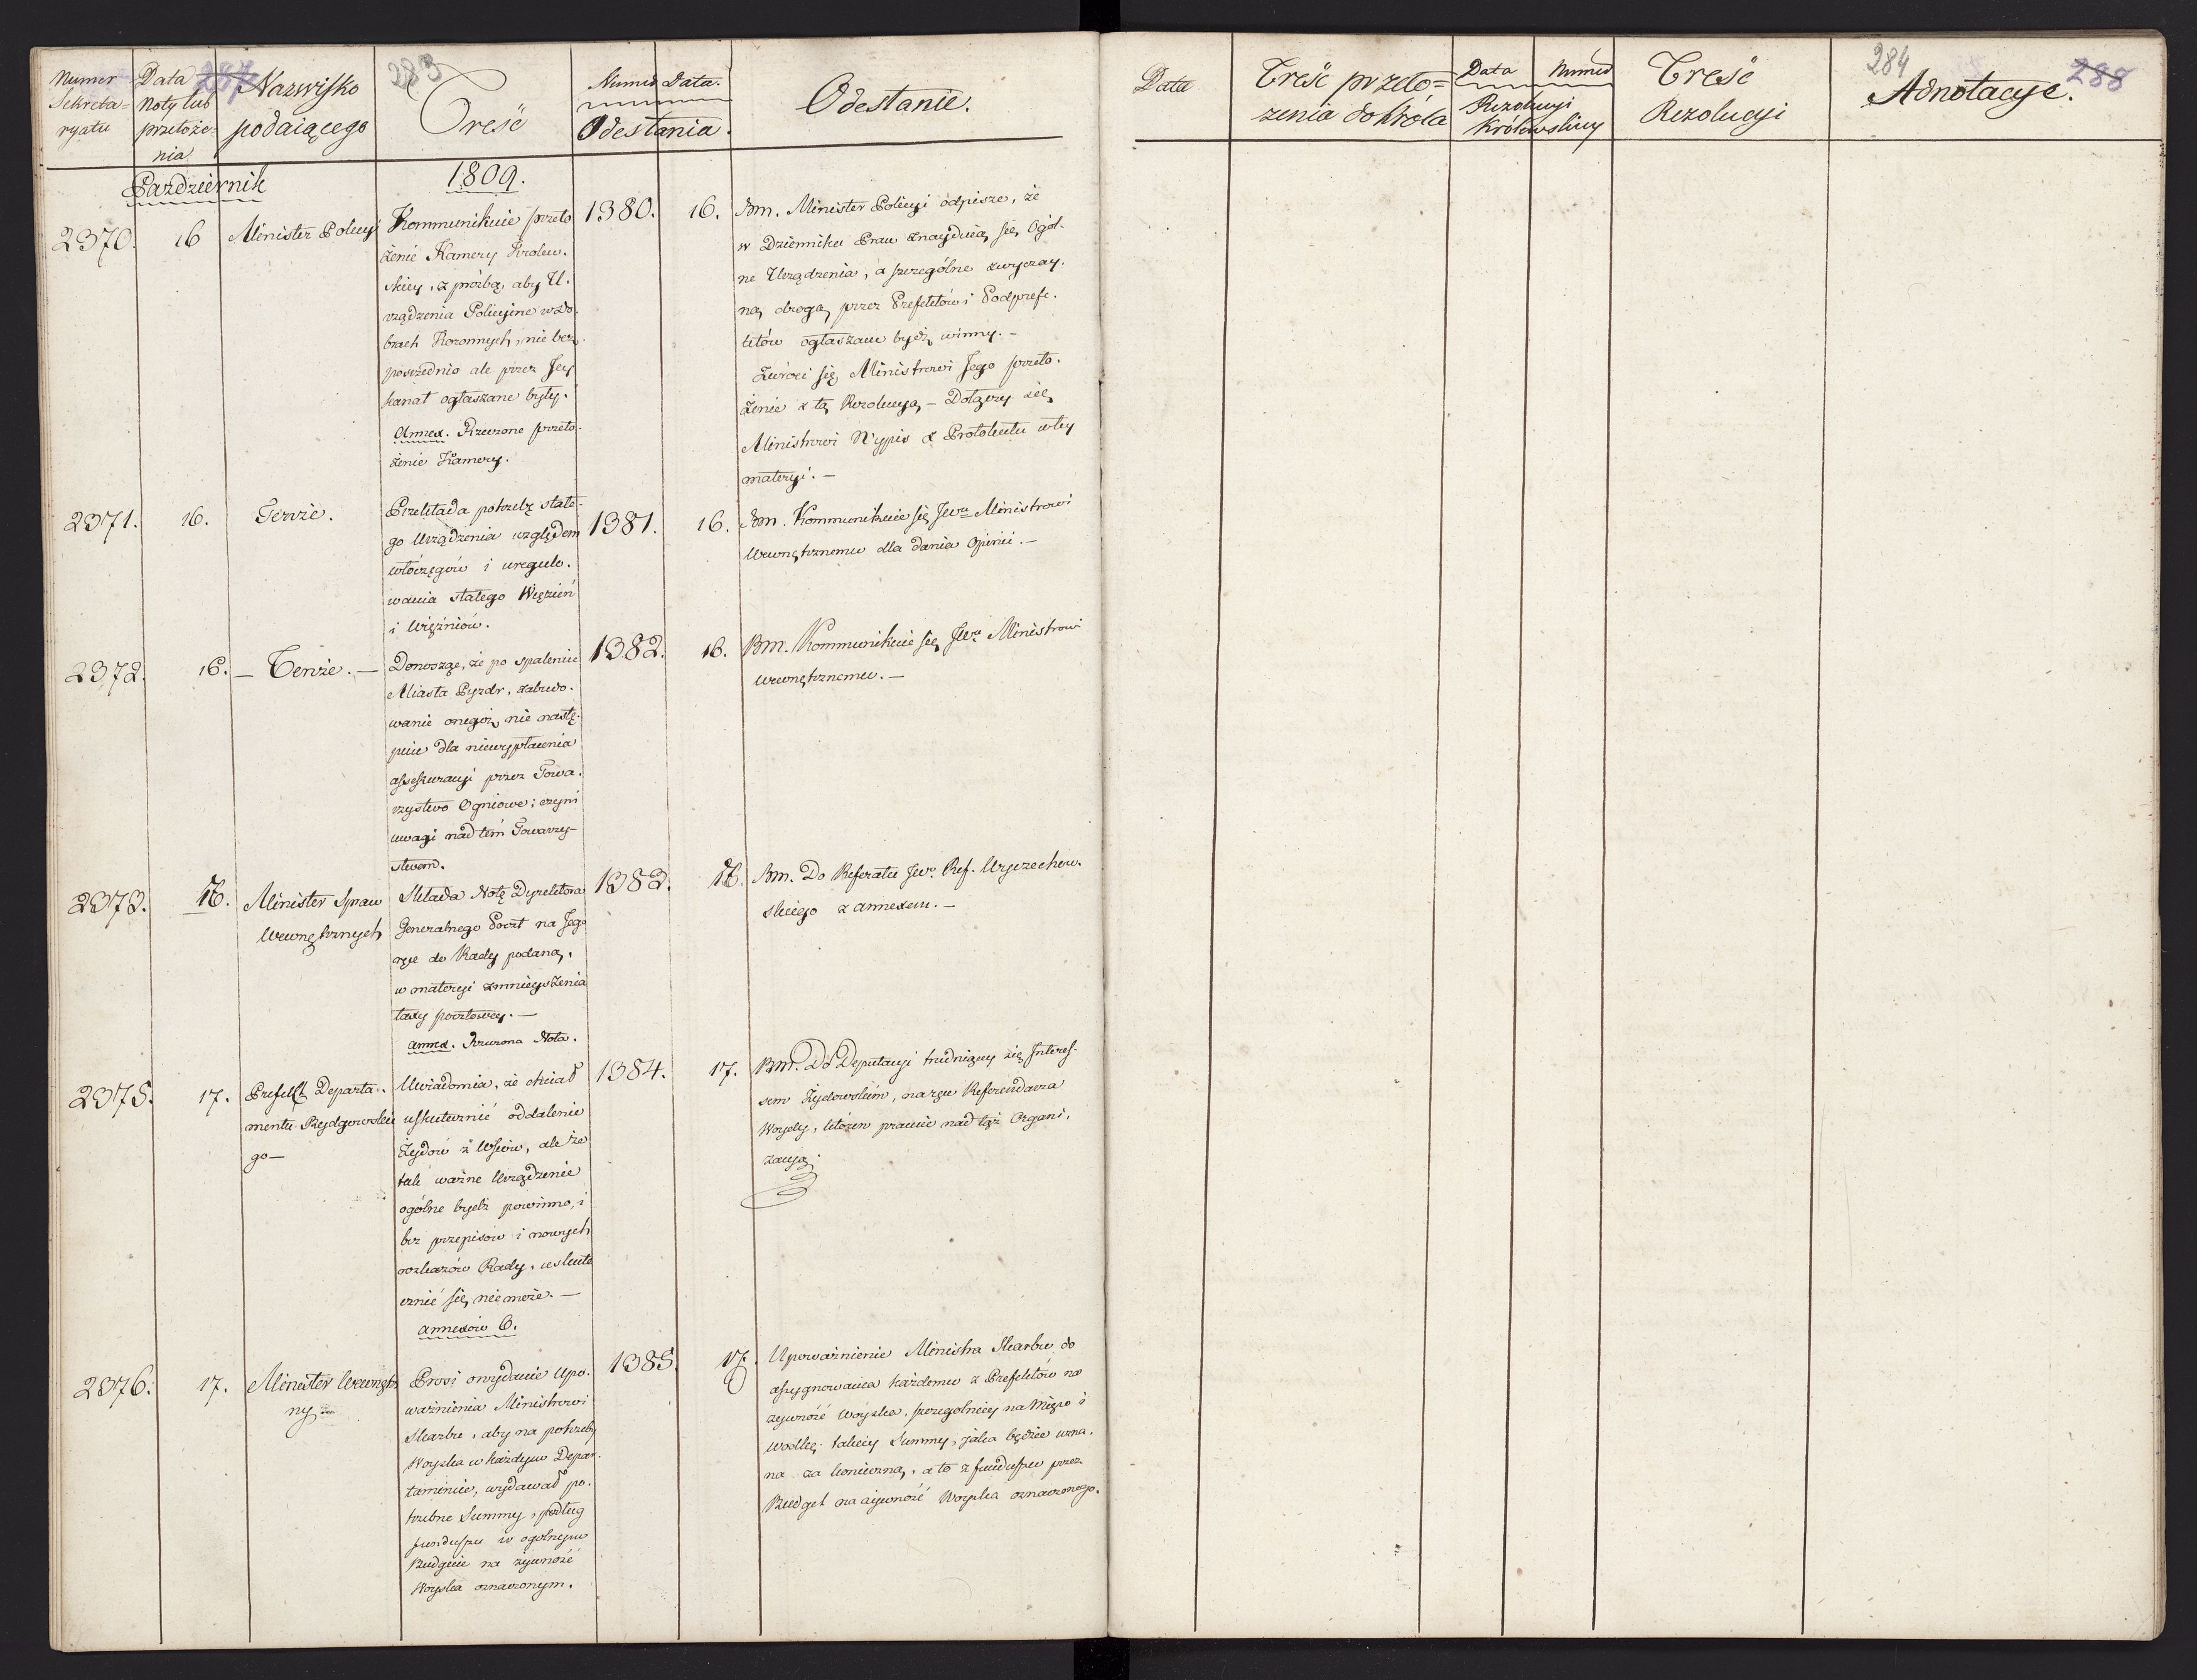 Numer Sekreta-
ryatu
Data
Noty lub
przełoże-
nia
287
Nazwisko
podaiącego
283
Treść
Numer Data.
Odesłania.
Odesłanie.
Październik
1809.
2370. 16 Minister Policyi
Kommunikuie przeło
żenie Kamery Krolew.
skiey, z prożbą, aby U.
rządzenia Policyine w do.
brach Koronnych, nie bez.
pośrzednio ale przez Jey
kanał ogłaszane były.
Annex. Rzeczone przeło-
żenie Kamery.
1380. 16. Bm. Minister Policyi odpisze, że
w Dzienniku Praw znayduią się Ogól-
ne Urządzenia, a szczególne zwyczay.
ną drogą przez Prefektów i Podprefe.
któw ogłaszane bydź winny. –
Zwróci się Ministrowi Jego przeło.
żenie z tą Rezolucyą – Dołączy się
Ministrowi Wypis z Protokułu w tey
materyi. –
2371. 16. Tenże.
Przekłada potrzebę stałe-
go Urządzenia względem
włóczęgów i uregulo.
wania stałego Więzień
i Więźniów.
1381. 16. Bm. Kommunikuie się JWu Ministrowi
Wewnętrznemu dla dania Opinii. –
2372. 16. – Tenże. –
Donosząc, że po spaleniu
Miasta Pyzdr, zabudo.
wanie onegoż nie nastę-
puie dla niewypłacenia
assekuracyi przez Towa.
rzystwo Ogniowe; czyni
uwagi nad tém Towarzy-
stwem.
1382. 16. Bm. Kommunikuie się JWu Ministrowi
Wewnętrznemu. –
2373. 16. Minister Spraw
Wewnętrznych
Składa Notę Dyrektora
Generalnego Poczt na Jego
ręce do Rady podaną,
w materyi zmnieyszenia
taxy pocztowey. –
Annex. Rzeczona Nota.
1383. 16. Bm. Do Referatu JWo Ref. Wyczechow-
skiego z annexem. –
2375. 17. Prefekt Departa-
mentu Bydgowskie
go –
Uwiadomia, że chciał
uskutecznić oddalenie
Żydów z Wsiów, ale że
tak ważne Urządzenie
ogólne bydź powinno, i
bez przepisów i nowych
rozkazów Rady, uskute
cznić się nie może. –
Annexów 6.
1384. 17. Bm. Do Deputacyi trudniącey się Interes-
sem Żydowskim, na ręce Referendarza
Woydy, który pracuie nad tąż Organi.
zacyą.
2376. 17. Minister Wewnętrz
ny –
Prosi o wydanie Upo.
ważnienia Ministrowi
Skarbu, aby na potrzeby
Woyska w każdym Depar.
tamencie, wydawał po.
trzebne Summy, podług
funduszu w ogólnym
Budgecie na żywność
Woyska oznaczonym.
1385. 17. Upoważnienie Ministra Skarbu do
assygnowania każdemu z Prefektów na
żywność Woyska, szczególniey na Mięso i
wodkę takiey Summy, jaka będzie uzna.
na za konieczną, a to z funduszu przez
Budget na żywność Woyska oznaczonego.
Data
Treść przeło=
żenia do Króla
Data Numer
Rezolucyi
Królewskiey
Treść
Rezolucyi
284
Adnotacye.
288